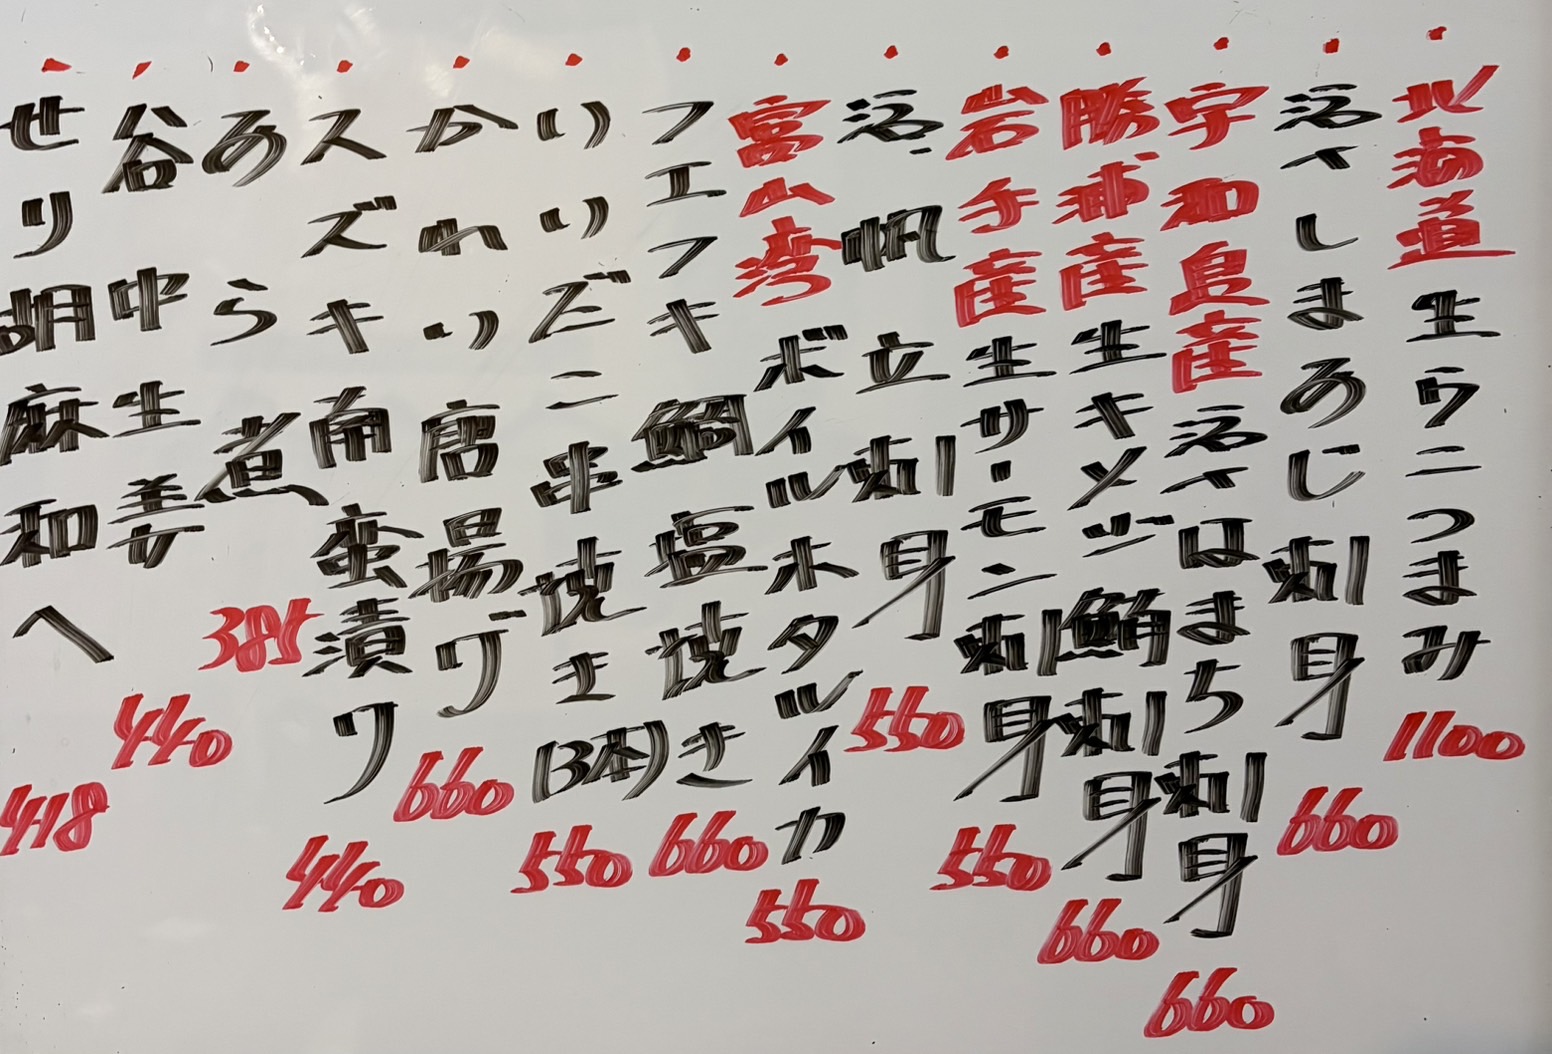 北海道生ウニつまみ 1100
活〆しまあじ刺身 660
宇和島産活〆はまち刺身 660
勝浦産生キメジ鮪刺身 660
岩手産生サーモン刺身 550
活帆立刺身 550
富山湾ボイルホタルイカ 550
フエフキ鯛塩焼き 660
いいだこ串焼き(3本) 550
かれい唐揚げ 660
スズキ南蛮漬け 440
あら煮 385
谷中生姜 440
せり胡麻和へ 418